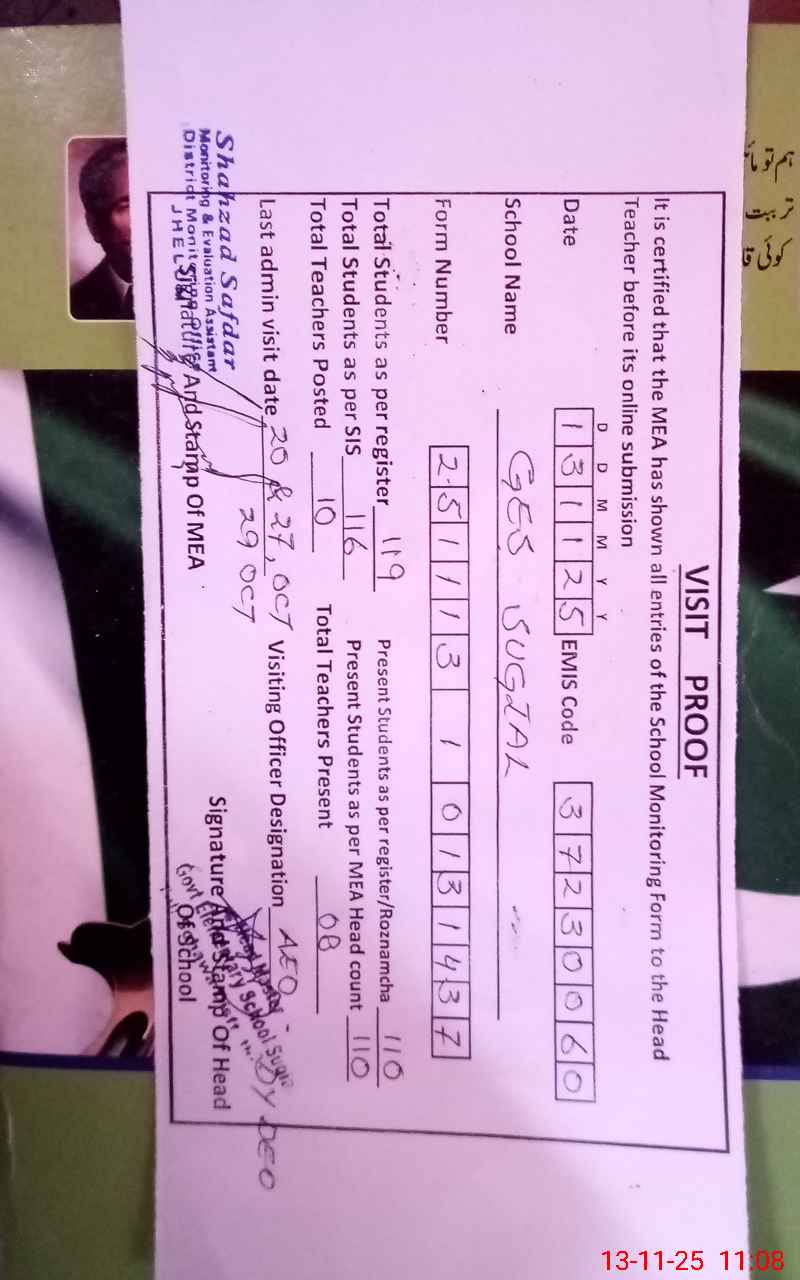 VISIT PROOF
It is certified that the MEA has shown all entries of the School Monitoring Form to the Head
Teacher before its online submission
D D M M Y Y
Date 131125 EMIS Code 37230060
School Name GES SUGIAL
Form Number 25111310131437
Total Students as per register 119 Present Students as per register/Roznamcha 110
Total Students as per SIS 116 Present Students as per MEA Head count 110
Total Teachers Posted 10 Total Teachers Present 08
Last admin visit date 20 & 27, OCT Visiting Officer Designation AEO - DY DEO
29 OCT
Shahzad Safdar
Monitoring & Evaluation Assistant
District Monitoring Office
JHELUM
Signature And Stamp Of MEA
Signature And Stamp Of Head
Of School
Head Master
Govt Elementary School
ہم تو
تربیت
کوئی
13-11-25 11:08